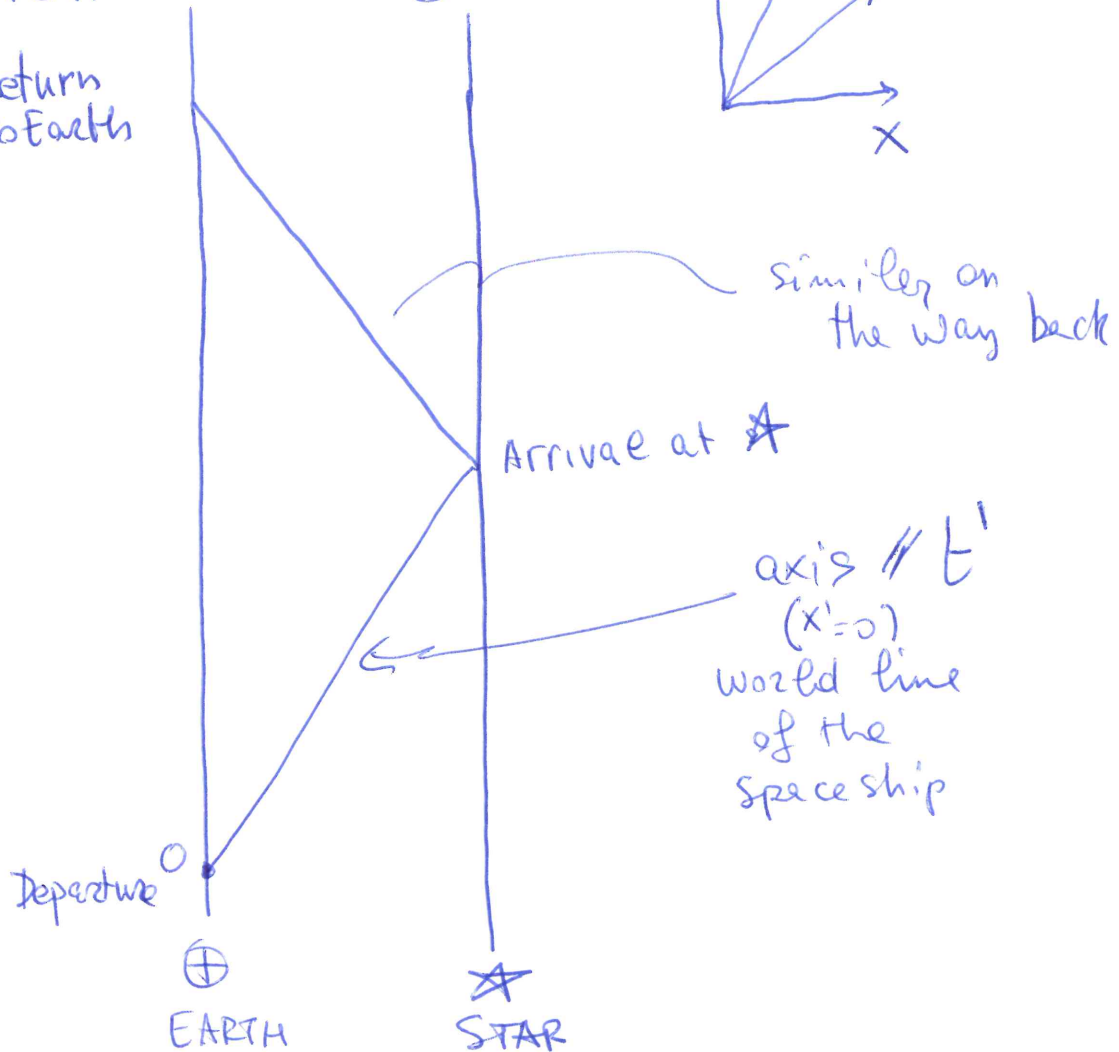 eturn
oEarth
X
similar on
the way back
Arrival at ☆
axis // t'
(x'=0)
world line
of the
spaceship
O
Departure
⊕
☆
EARTH
STAR